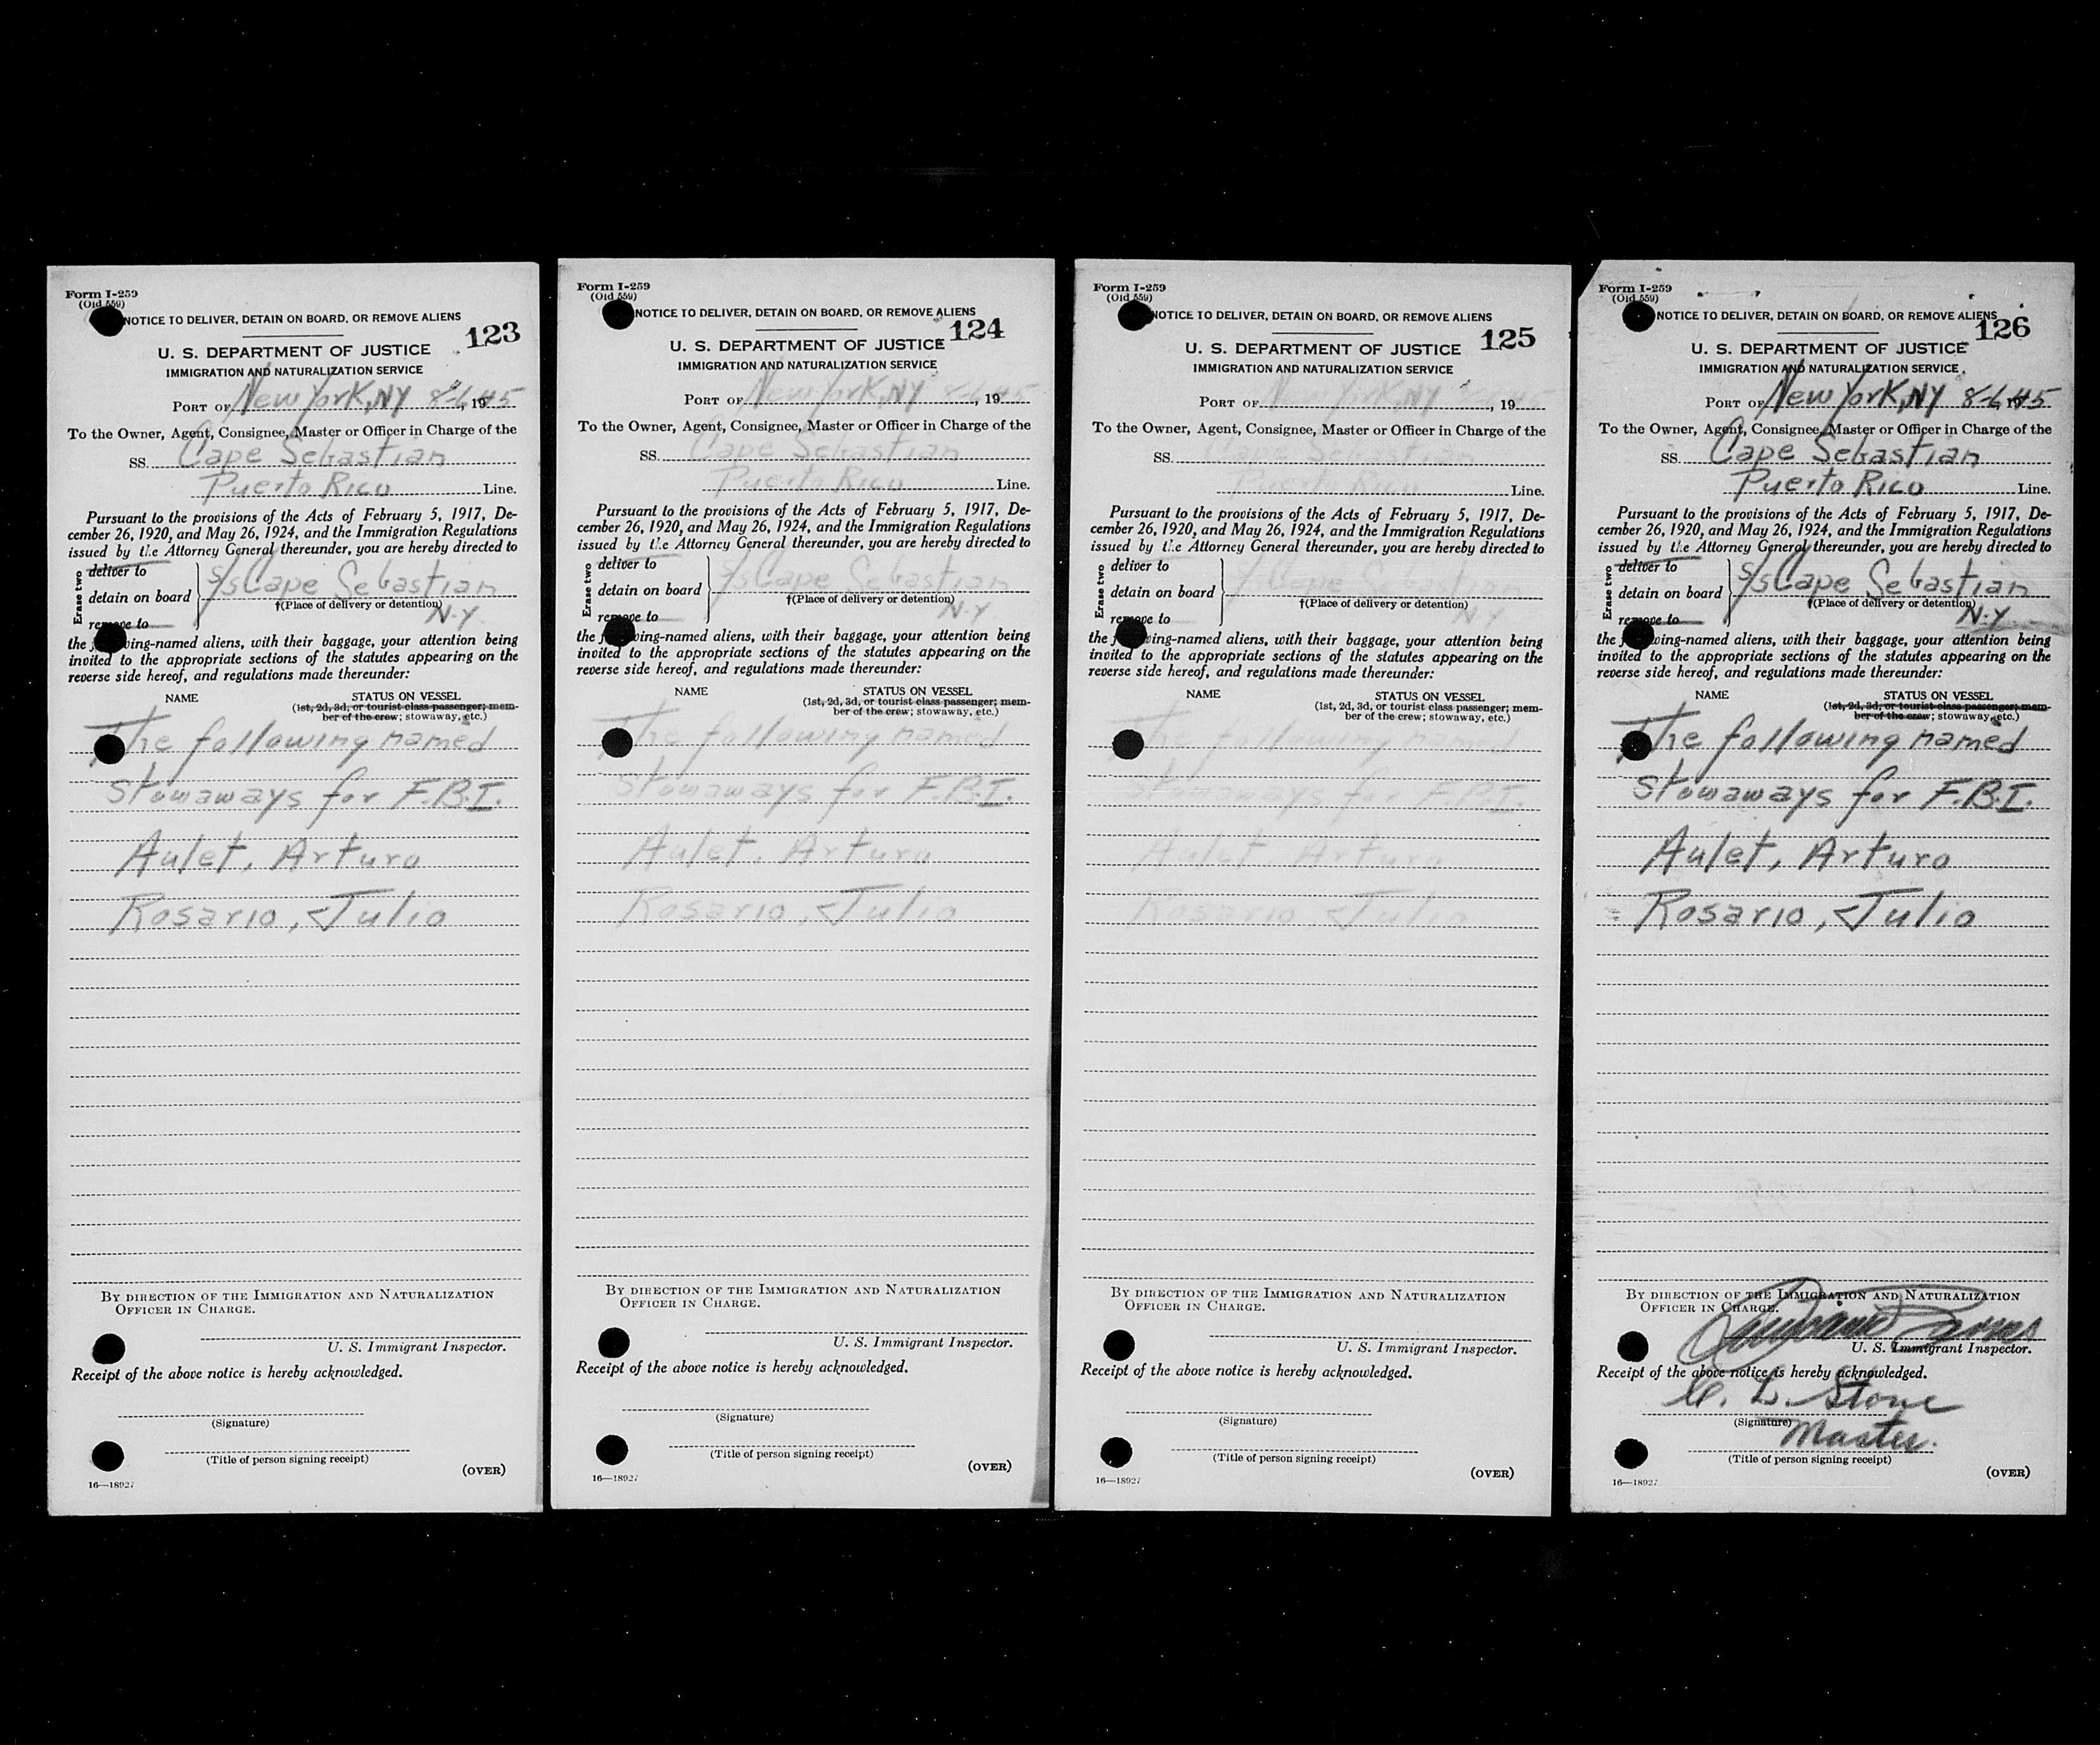 Form I-259
(Old 559)
NOTICE TO DELIVER, DETAIN ON BOARD, OR REMOVE ALIENS
123
U. S. DEPARTMENT OF JUSTICE
IMMIGRATION AND NATURALIZATION SERVICE
PORT OF New York, NY 8-6-45, 19
To the Owner, Agent, Consignee, Master or Officer in Charge of the
SS. Cape Sebastian
Puerto Rico Line.
Pursuant to the provisions of the Acts of February 5, 1917, De-
cember 26, 1920, and May 26, 1924, and the Immigration Regulations
issued by the Attorney General thereunder, you are hereby directed to
Erase two
deliver to
detain on board
remove to
S/S Cape Sebastian
†(Place of delivery or detention)
N.Y.
the following-named aliens, with their baggage, your attention being
invited to the appropriate sections of the statutes appearing on the
reverse side hereof, and regulations made thereunder:
NAME STATUS ON VESSEL
(1st, 2d, 3d, or tourist class passenger; mem-
ber of the crew; stowaway, etc.)
The following named
Stowaways for F.B.I.
Aulet, Arturo
Rosario, Julio
BY DIRECTION OF THE IMMIGRATION AND NATURALIZATION
OFFICER IN CHARGE.
U. S. Immigrant Inspector.
Receipt of the above notice is hereby acknowledged.
(Signature)
(Title of person signing receipt)
(OVER)
16—18927
Form I-259
(Old 559)
NOTICE TO DELIVER, DETAIN ON BOARD, OR REMOVE ALIENS
124
U. S. DEPARTMENT OF JUSTICE
IMMIGRATION AND NATURALIZATION SERVICE
PORT OF New York, NY 8-6-45, 19
To the Owner, Agent, Consignee, Master or Officer in Charge of the
SS. Cape Sebastian
Puerto Rico Line.
Pursuant to the provisions of the Acts of February 5, 1917, De-
cember 26, 1920, and May 26, 1924, and the Immigration Regulations
issued by the Attorney General thereunder, you are hereby directed to
Erase two
deliver to
detain on board
remove to
S/S Cape Sebastian
†(Place of delivery or detention)
N.Y
the following-named aliens, with their baggage, your attention being
invited to the appropriate sections of the statutes appearing on the
reverse side hereof, and regulations made thereunder:
NAME STATUS ON VESSEL
(1st, 2d, 3d, or tourist class passenger; mem-
ber of the crew; stowaway, etc.)
The following named
Stowaways for F.B.I.
Aulet, Arturo
Rosario, Julio
BY DIRECTION OF THE IMMIGRATION AND NATURALIZATION
OFFICER IN CHARGE.
U. S. Immigrant Inspector.
Receipt of the above notice is hereby acknowledged.
(Signature)
(Title of person signing receipt)
(OVER)
16—18927
Form I-259
(Old 559)
NOTICE TO DELIVER, DETAIN ON BOARD, OR REMOVE ALIENS
125
U. S. DEPARTMENT OF JUSTICE
IMMIGRATION AND NATURALIZATION SERVICE
PORT OF New York, NY 8-6-45, 19
To the Owner, Agent, Consignee, Master or Officer in Charge of the
SS. Cape Sebastian
Puerto Rico Line.
Pursuant to the provisions of the Acts of February 5, 1917, De-
cember 26, 1920, and May 26, 1924, and the Immigration Regulations
issued by the Attorney General thereunder, you are hereby directed to
Erase two
deliver to
detain on board
remove to
S/S Cape Sebastian
†(Place of delivery or detention)
NY
the following-named aliens, with their baggage, your attention being
invited to the appropriate sections of the statutes appearing on the
reverse side hereof, and regulations made thereunder:
NAME STATUS ON VESSEL
(1st, 2d, 3d, or tourist class passenger; mem-
ber of the crew; stowaway, etc.)
The following named
Stowaways for F.B.I.
Aulet, Arturo
Rosario, Julio
BY DIRECTION OF THE IMMIGRATION AND NATURALIZATION
OFFICER IN CHARGE.
U. S. Immigrant Inspector.
Receipt of the above notice is hereby acknowledged.
(Signature)
(Title of person signing receipt)
(OVER)
16—18927
Form I-259
(Old 559)
NOTICE TO DELIVER, DETAIN ON BOARD, OR REMOVE ALIENS
126
U. S. DEPARTMENT OF JUSTICE
IMMIGRATION AND NATURALIZATION SERVICE
PORT OF New York, NY 8-6-45
To the Owner, Agent, Consignee, Master or Officer in Charge of the
SS. Cape Sebastian
Puerto Rico Line.
Pursuant to the provisions of the Acts of February 5, 1917, De-
cember 26, 1920, and May 26, 1924, and the Immigration Regulations
issued by the Attorney General thereunder, you are hereby directed to
Erase two
deliver to
detain on board
remove to
S/S Cape Sebastian
†(Place of delivery or detention)
N.Y
the following-named aliens, with their baggage, your attention being
invited to the appropriate sections of the statutes appearing on the
reverse side hereof, and regulations made thereunder:
NAME STATUS ON VESSEL
(1st, 2d, 3d, or tourist class passenger; mem-
ber of the crew; stowaway, etc.)
The following named
Stowaways for F.B.I.
Aulet, Arturo
Rosario, Julio
BY DIRECTION OF THE IMMIGRATION AND NATURALIZATION
OFFICER IN CHARGE.
U. S. Immigrant Inspector.
Receipt of the above notice is hereby acknowledged.
C. L. Stone
(Signature)
Master.
(Title of person signing receipt)
(OVER)
16—18927